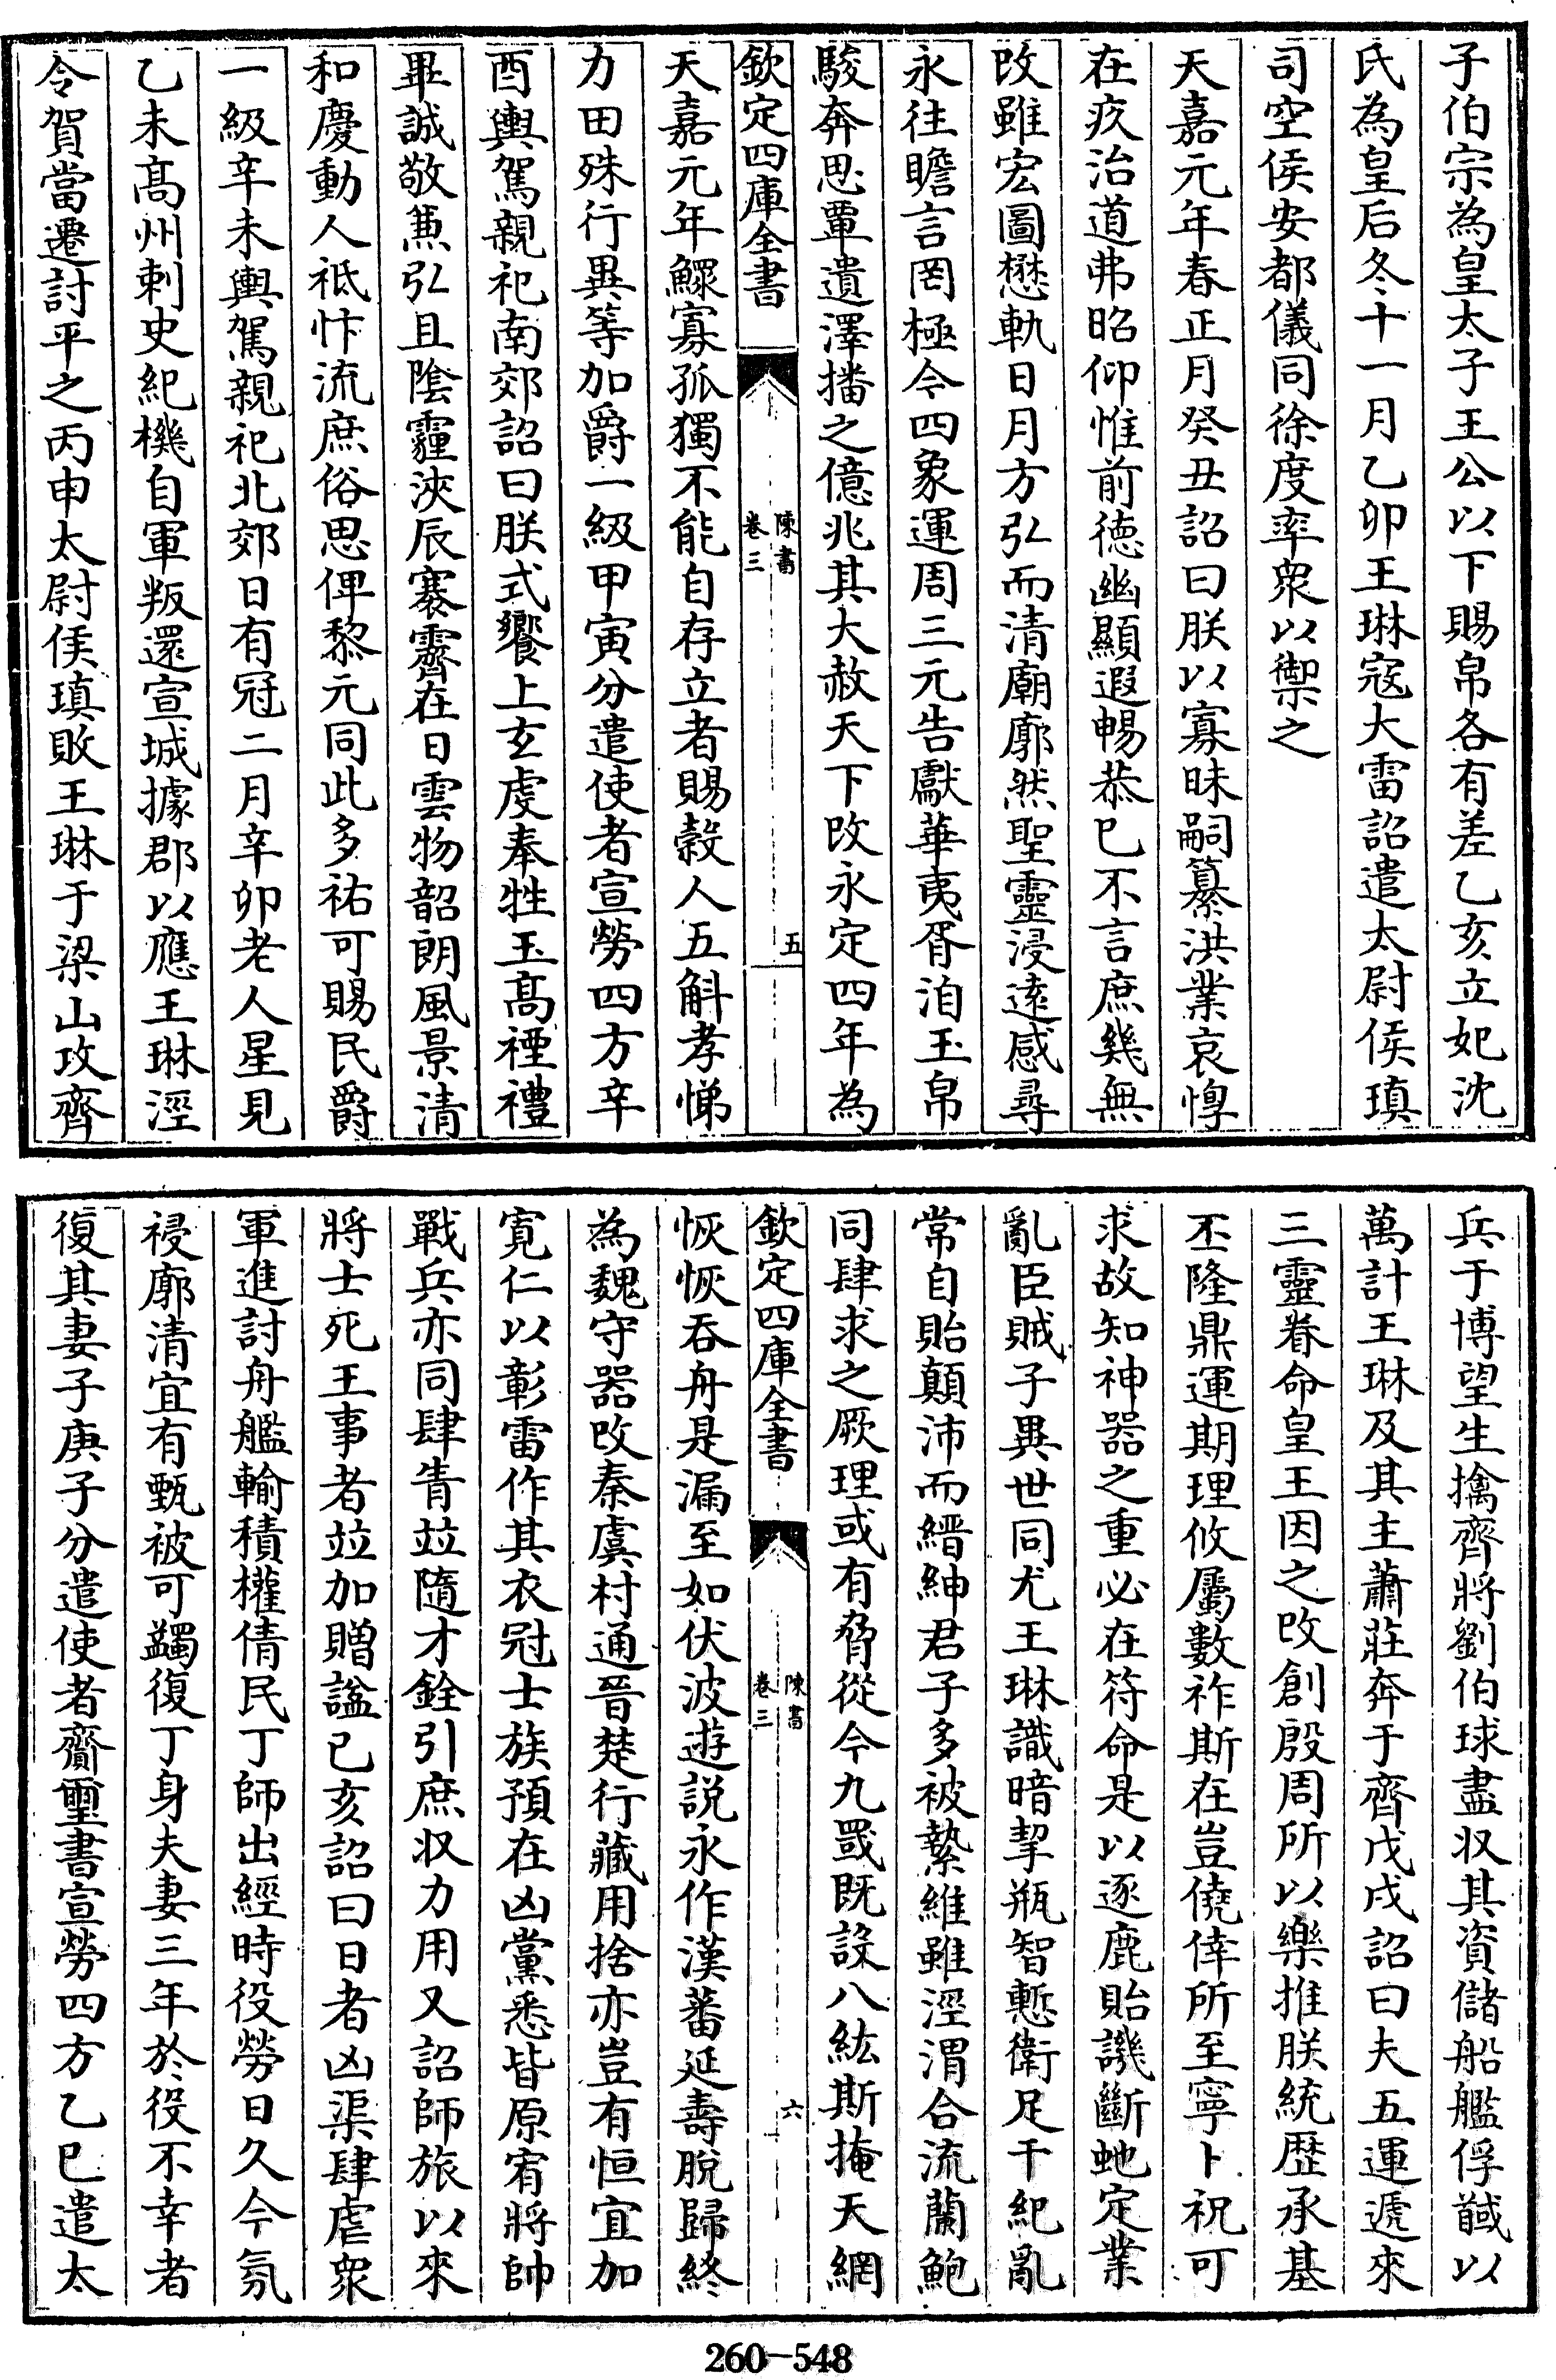 子伯宗為皇太子王公以下賜帛各有差乙亥立妃沈
氏為皇后冬十一月乙卯王琳寇大雷詔遣太尉侯瑱
司空侯安都儀同徐度率衆以禦之
天嘉元年春正月癸丑詔曰朕以寡昧嗣纂洪業哀惸
在疚治道弗昭仰惟前徳幽顯遐暢恭已不言庶幾無
改雖宏圖懋軌日月方弘而清廟廓然聖靈浸逺感尋
永往瞻言罔極今四象運周三元告獻華夷胥洎玉帛
駿奔思覃遺澤播之億兆其大赦天下改永定四年為
欽定四庫全書
陳書
卷三
五
天嘉元年鰥寡孤獨不能自存立者賜榖人五斛孝悌
力田殊行異等加爵一級甲寅分遣使者宣勞四方辛
酉輿駕親祀南郊詔曰朕式饗上玄虔奉牲玉髙禋禮
畢誠敬兼弘且陰霾浹辰褰霽在日雲物韶朗風景清
和慶動人祗忭流庶俗思俾黎元同此多祐可賜民爵
一級辛未輿駕親祀北郊日有冠二月辛卯老人星見
乙未髙州刺史紀機自軍叛還宣城據郡以應王琳涇
令賀當遷討平之丙申太尉侯瑱敗王琳于梁山攻齊
兵于博望生擒齊將劉伯球盡収其資儲船艦俘馘以
萬計王琳及其主蕭莊奔于齊戊戌詔曰夫五運遞來
三靈眷命皇王因之改創殷周所以樂推朕統歴承基
丕隆鼎運期理攸屬數祚斯在豈僥倖所至寧卜祝可
求故知神器之重必在符命是以逐鹿貽譏斷虵定業
亂臣賊子異世同尤王琳識暗挈瓶智慙衛足干紀亂
常自貽顛沛而縉紳君子多被縶維雖涇渭合流蘭鮑
同肆求之厥理或有脅從今九罭既設八紘斯掩天網
欽定四庫全書
陳書
卷三
六
恢恢吞舟是漏至如伏波逰説永作漢蕃延壽脫歸終
為魏守器改秦虞村通晉楚行藏用捨亦豈有恒宜加
寛仁以彰雷作其衣冠士族預在凶黨悉皆原宥將帥
戰兵亦同肆眚竝隨才銓引庶収力用又詔師旅以來
將士死王事者竝加贈諡已亥詔曰日者凶渠肆虐衆
軍進討舟艦輸積權倩民丁師出經時役勞日久今氛
祲廓清宜有甄被可蠲復丁身夫妻三年於役不幸者
復其妻子庚子分遣使者齎璽書宣勞四方乙巳遣太
260-548